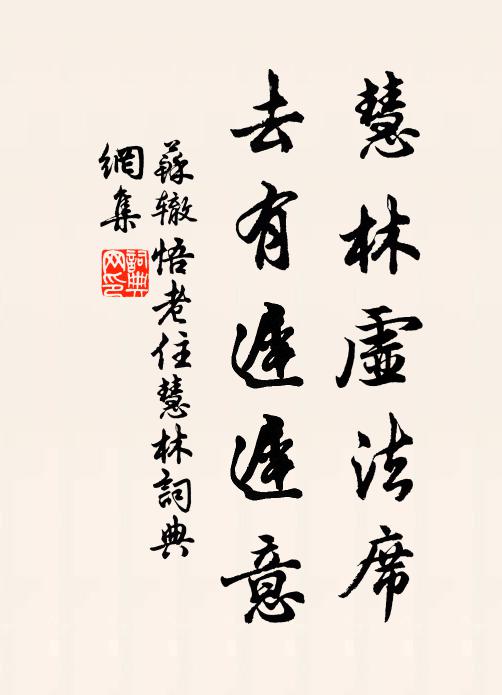 慧林虛法席
去有遲遲意
蘇辙悟老住慧林詞典
網集
詞典
网印